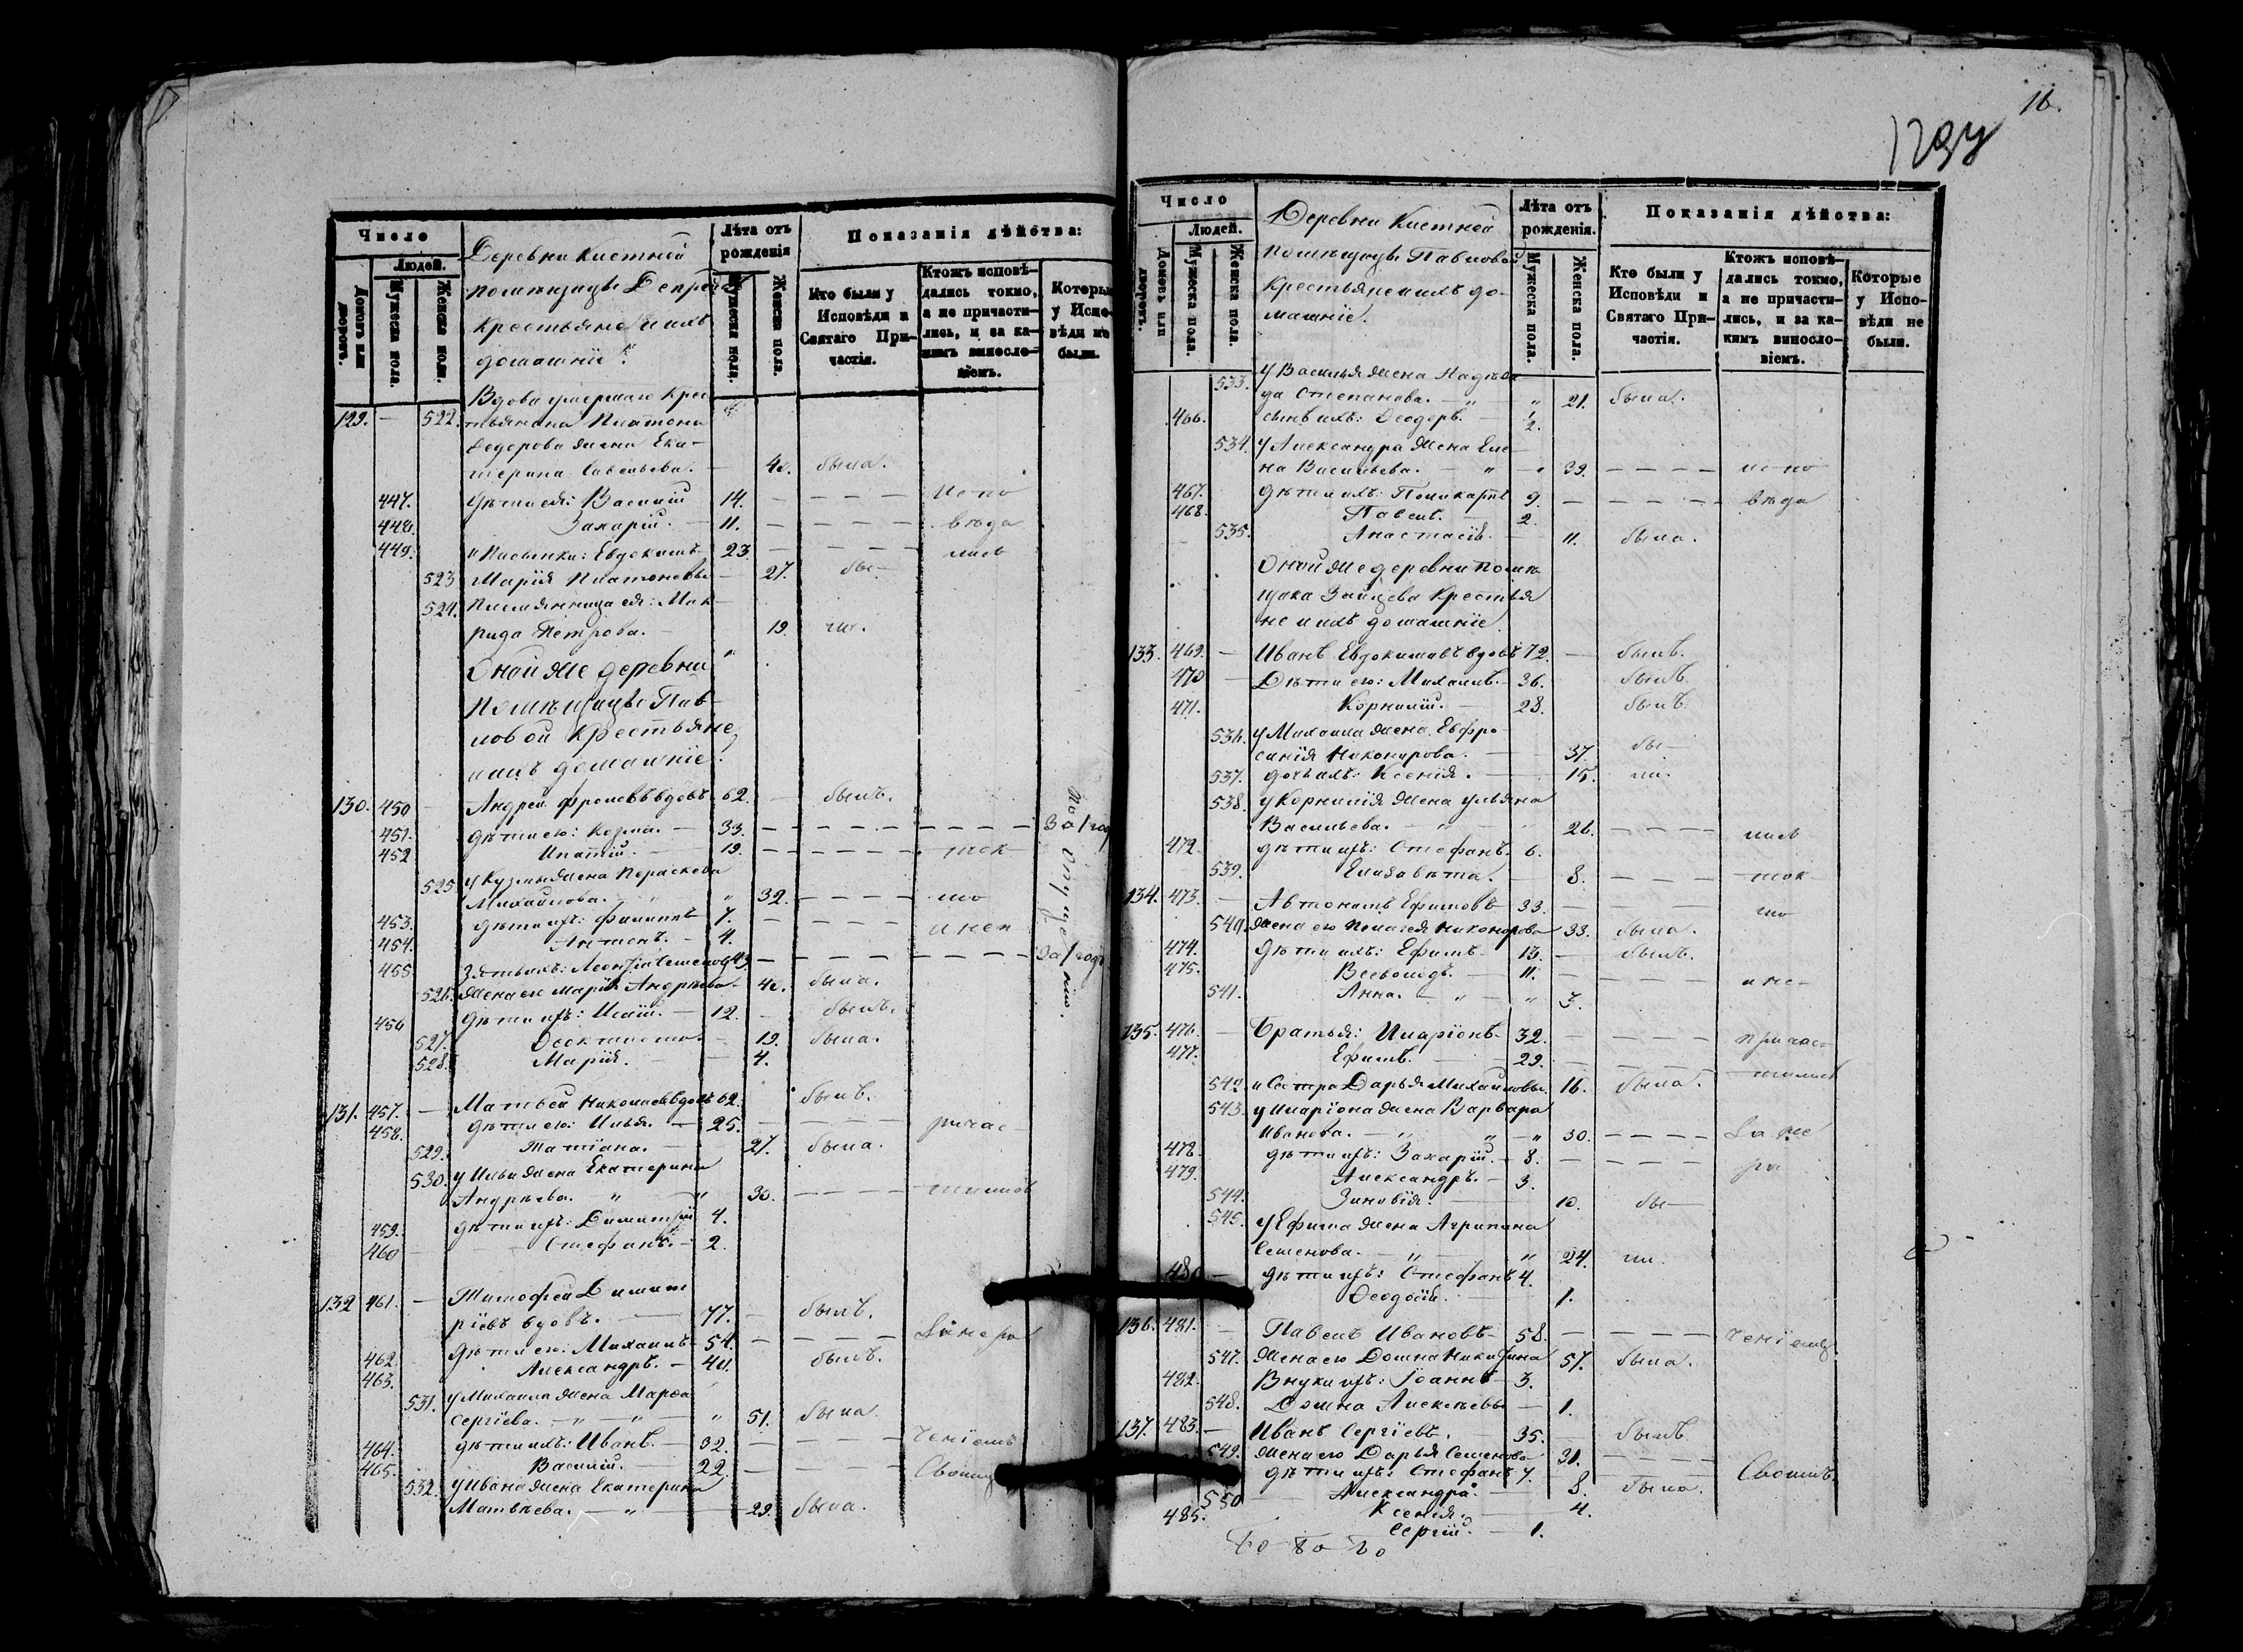 Число
Людей.
Домовъ или дворовъ.
Мужеска пола.
Женска пола.
Деревни Кистной
помѣщицы
Крестьяне и ихъ
домашніе.
Лѣта отъ рожденія
Мужеска пола.
Женска пола.
Показанія дѣйства:
Кто были у Исповѣди и Святаго Причастія.
Ктожъ исповѣдались токмо, а не причастились, и за какимъ винословіемъ.
Которые у Исповѣди не были.
129. — 522. Вдова умершаго Крестьянина Платона
Ѳедорова жена Екатерина Савельева. — 40. была.
447. Дѣти ея: Василій 14. — — — — испо
448. Захарій. — 11. — — — — вѣда
449. и Пасынки: Евдокимъ 23. — — — — лись
523 Марія Платонова — 27. бы-
524. Племянница ея: Мак-
рида Петрова. — 19. ли.
Оной же деревни
Помѣщицы Пав-
ловой Крестьяне
и ихъ домашніе.
130. 450 — Андрей Фроловъ вдовъ 62. — былъ.
451. Дѣти его: Козма. — 33. — — — — — — — За 1 годъ
452 Ипатій. — 19. — — — — ток-
525. у Кузмы жена Параскева
Михайлова. — " " 32. — — — — мо
453. Дѣти ихъ: Филиппъ 7. — — — — и не п
454. Антонъ. — 4.
455 Зять ихъ: Леонтій Семеновъ 43. — — — — — — — За 1 годъ
по опущенію.
526. Жена его Марія Андрѣева — 40. была.
456 Дѣти ихъ: Исаій. — 12. — былъ.
527. Ѳеоктиста. — 19. была.
528. Марія. — 4.
131. 457. — Матвей Николаевъ вдовъ 62. былъ.
458. Дѣти его: Илья. — 25. — — — — ричас-
529. Татіана. — 27. была.
530. у Ильи жена Екатерина
Андрѣева. — " " 30. — — — — тились
459. Дѣти ихъ: Димитрій 4.
460 — Стефанъ. — 2.
132 461. — Тимофей Димит
ріевъ вдовъ. — 77. — былъ.
462. Дѣти его: Михаилъ — 54. — — — — За нера
463. Александръ. — 44. былъ.
531. у Михаила жена Марѳа
Сергіева. — " — " — " 51. была.
464. Дѣти ихъ: Иванъ. — 32. — — — — ченіемъ
465. Василій. — 22. — — — — Своимъ
532. у Ивана жена Екатерина
Матвѣева. — " — 29. была.
16.
Число
Людей.
Домовъ или дворовъ.
Мужеска пола.
Женска пола.
Деревни Кистной
помѣщицы Павловой
Крестьяне и ихъ до-
машніе.
Лѣта отъ рожденія.
Мужеска пола.
Женска пола.
Показанія дѣйства:
Кто были у Исповѣди и Святаго Причастія.
Ктожъ исповѣдались токмо, а не причастились, и за какимъ винословіемъ.
Которые у Исповѣди не были.
533. у Василья жена Надеж
да Степанова. — " " 21. была.
466. сынъ ихъ: Ѳеодоръ. — 1/2.
534. у Александра жена Еле-
на Васильева. — " — " 39. — — — — испо
467. Дѣти ихъ: Поликарпъ 9. — — — — вѣда
468. Павелъ. — 2.
535. Анастасія. — 11. была.
Оной же деревни Помѣ-
щика Зайцева Крестья
не и ихъ домашніе.
133. 469. — Иванъ Евдокимовъ вдовъ 72. — былъ.
470 — Дѣти его: Михаилъ. — 36. былъ.
471. Корнилій. — 28. былъ.
536. у Михаила жена Евфро-
синія Никонорова. — 37. бы-
537. дочь ихъ: Ксенія. — 15. ли.
538. у Корнилія жена Ульяна
Васильева. — " 26. — — — — лись
472. дѣти ихъ: Стефанъ. 6.
539. Елизавета. — 8. — — — — ток-
134. 473. — Автономъ Ефимовъ — 33. — — — — мо
540. Жена его Пелагея Никонорова 33. была.
474. Дѣти ихъ: Ефимъ. — 13. — былъ.
475. Всеволодъ. — 11. — — — — и не-
541. Анна. — " — " 3.
135. 476. — Братья: Иларіонъ — 32. — — — — причас-
477. Ефимъ. — 29. — — — — тились
542 и Сестра Дарья Михайловы. 16. была.
543. у Иларіона жена Варвара
Иванова. — " " — " 30. — — — — За не
478. Дѣти ихъ: Захарій. — 8. — — — — ра
479. Александръ. — 3.
544. Зиновія. — 10. бы-
545. у Ефима жена Агрипина
Семенова. — " — " 24. ли.
480 — Дѣти ихъ: Стефанъ 4.
Ѳеодосія. — 1.
136. 481. — Павелъ Ивановъ — 58. — — — — ченіемъ
547. Жена его Домна Никитина 57. была.
482. Внуки ихъ: Іоаннъ — 3.
548. Домна Алексѣевы — 1.
137. 483. — Иванъ Сергіевъ. — 35. — былъ.
549. Жена его Дарья Семенова 30. — — — —
Дѣти ихъ: Стефанъ 7. Своимъ.
550 Александра. — 8. была.
Ксенія. — 4.
485. Сергій. — 1.